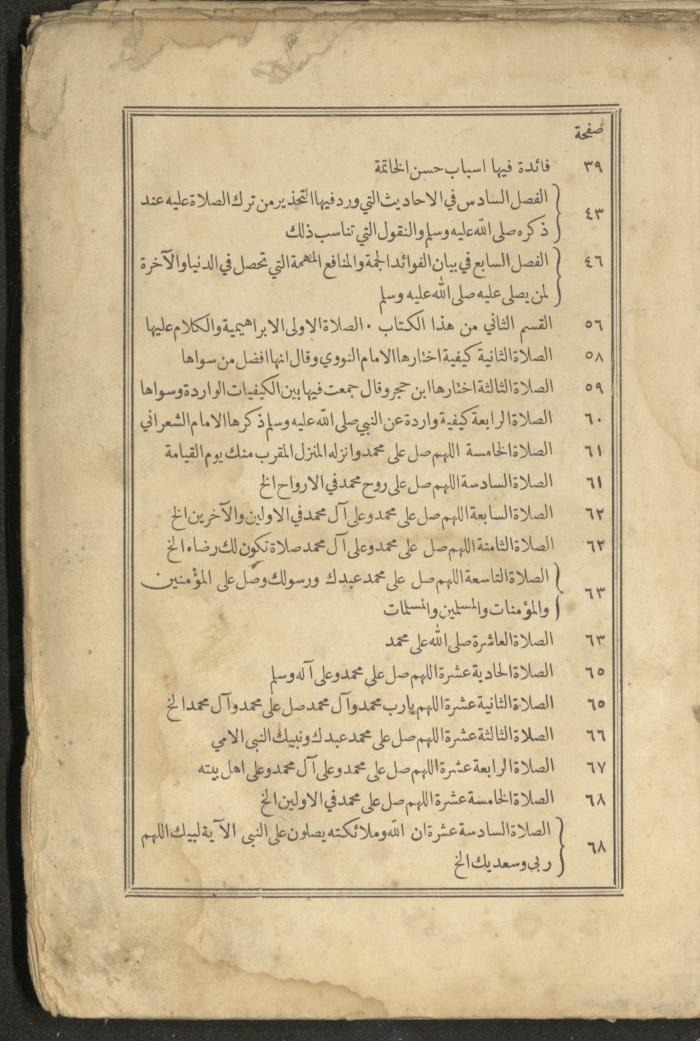 صفحة
٣٩ فائدة فيها اسباب حسن الخاتمة
٤٣ الفصل السادس في الاحاديث التي ورد فيها التحذير من ترك الصلاة عليه عند
ذكره صلى الله عليه وسلم والنقول التي تناسب ذلك
٤٦ الفصل السابع في بيان الفوائد الجمة والمنافع المهمة التي تحصل في الدنيا والآخرة
لمن يصلي عليه صلى الله عليه وسلم
٥٦ القسم الثاني من هذا الكتاب . الصلاة الاولى الابراهيمية والكلام عليها
٥٨ الصلاة الثانية كيفية اختارها الامام النووي وقال انها افضل من سواها
٥٩ الصلاة الثالثة اختارها ابن حجر وقال جمعت فيها بين الكيفيات الواردة وسواها
٦٠ الصلاة الرابعة كيفية واردة عن النبي صلى الله عليه وسلم ذكرها الامام الشعراني
٦١ الصلاة الخامسة اللهم صل على محمد وانزله المنزل المقرب منك يوم القيامة
٦١ الصلاة السادسة اللهم صل على روح محمد في الارواح الخ
٦٢ الصلاة السابعة اللهم صل على محمد وعلى آل محمد في الاولين والآخرين الخ
٦٢ الصلاة الثامنة اللهم صل على محمد وعلى آل محمد صلاة تكون لك رضاء الخ
٦٣ الصلاة التاسعة اللهم صل على محمد عبدك ورسولك وصل على المؤمنين
والمؤمنات والمسلمين والمسلمات
٦٣ الصلاة العاشرة صلى الله على محمد
٦٥ الصلاة الحادية عشرة اللهم صل على محمد وعلى آله وسلم
٦٥ الصلاة الثانية عشرة اللهم يارب محمد وآل محمد صل على محمد وآل محمد الخ
٦٦ الصلاة الثالثة عشرة اللهم صل على محمد عبدك ونبيك النبي الامي
٦٧ الصلاة الرابعة عشرة اللهم صل على محمد وعلى آل محمد وعلى اهل بيته
٦٨ الصلاة الخامسة عشرة اللهم صل على محمد في الاولين الخ
٦٨ الصلاة السادسة عشرة ان الله وملائكته يصلون على النبي الآية لبيك اللهم
ربي وسعديك الخ